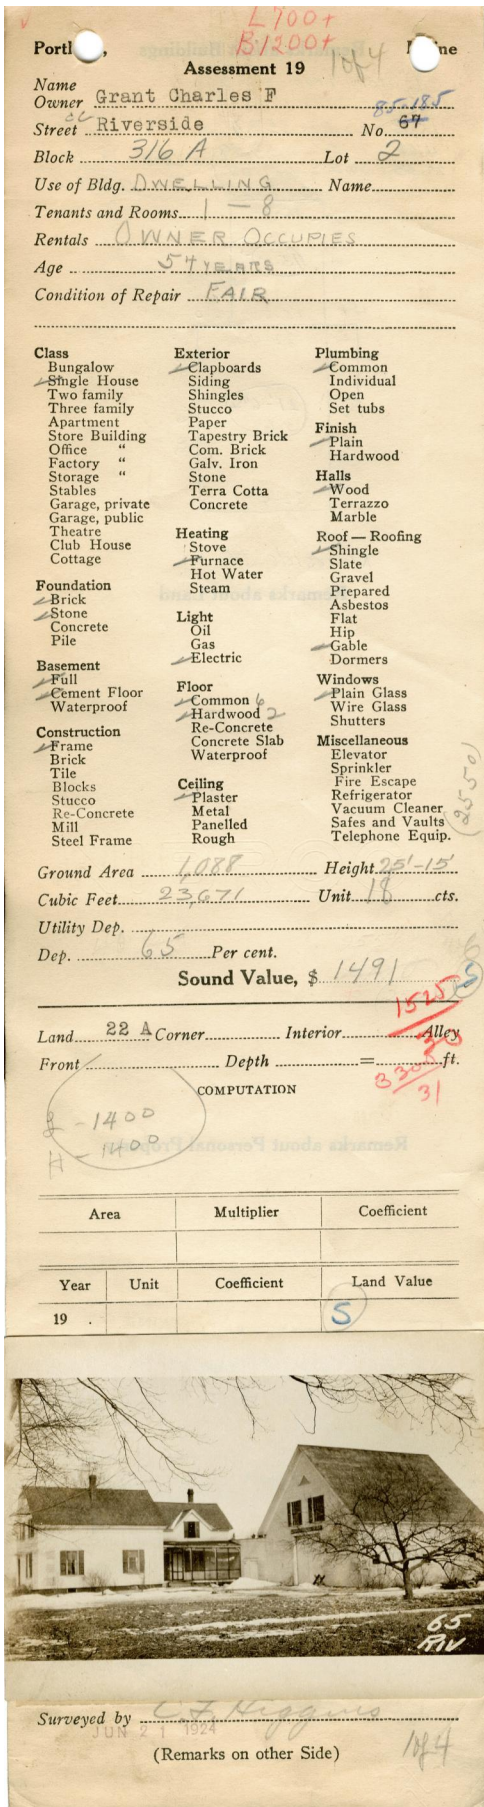 L700+
B1200+
Portl , M ine
1 of 4
Assessment 19
Name
Owner Grant Charles F
85-185
Street Riverside No. 67
Block 316 A Lot 2
Use of Bldg. DWELLING Name
Tenants and Rooms 1 - 8
Rentals OWNER OCCUPIES
Age 54 YEARS
Condition of Repair FAIR
Class
Bungalow
Single House
Two family
Three family
Apartment
Store Building
Office "
Factory "
Storage "
Stables
Garage, private
Garage, public
Theatre
Club House
Cottage
Foundation
Brick
Stone
Concrete
Pile
Basement
Full
Cement Floor
Waterproof
Construction
Frame
Brick
Tile
Blocks
Stucco
Re-Concrete
Mill
Steel Frame
Exterior
Clapboards
Siding
Shingles
Stucco
Paper
Tapestry Brick
Com. Brick
Galv. Iron
Stone
Terra Cotta
Concrete
Heating
Stove
Furnace
Hot Water
Steam
Light
Oil
Gas
Electric
Floor
Common 6
Hardwood 2
Re-Concrete
Concrete Slab
Waterproof
Ceiling
Plaster
Metal
Panelled
Rough
Plumbing
Common
Individual
Open
Set tubs
Finish
Plain
Hardwood
Halls
Wood
Terrazzo
Marble
Roof — Roofing
Shingle
Slate
Gravel
Prepared
Asbestos
Flat
Hip
Gable
Dormers
Windows
Plain Glass
Wire Glass
Shutters
Miscellaneous
Elevator
Sprinkler
Fire Escape
Refrigerator
Vacuum Cleaner
Safes and Vaults
Telephone Equip.
(2550)
Ground Area 1,088 Height 25'-15'
Cubic Feet 23,671 Unit 18 cts.
Utility Dep.
Dep. 65 Per cent.
Sound Value, $ 1491
5
1525
30
Land 22 A Corner Interior Alley
Front Depth = ft.
3300
31
COMPUTATION
L - 1400
H - 1400
Area Multiplier Coefficient
Year Unit Coefficient Land Value
19 . 5
65
RIV
Surveyed by C F Higgins
JUN 21 1924
(Remarks on other Side)
1 of 4